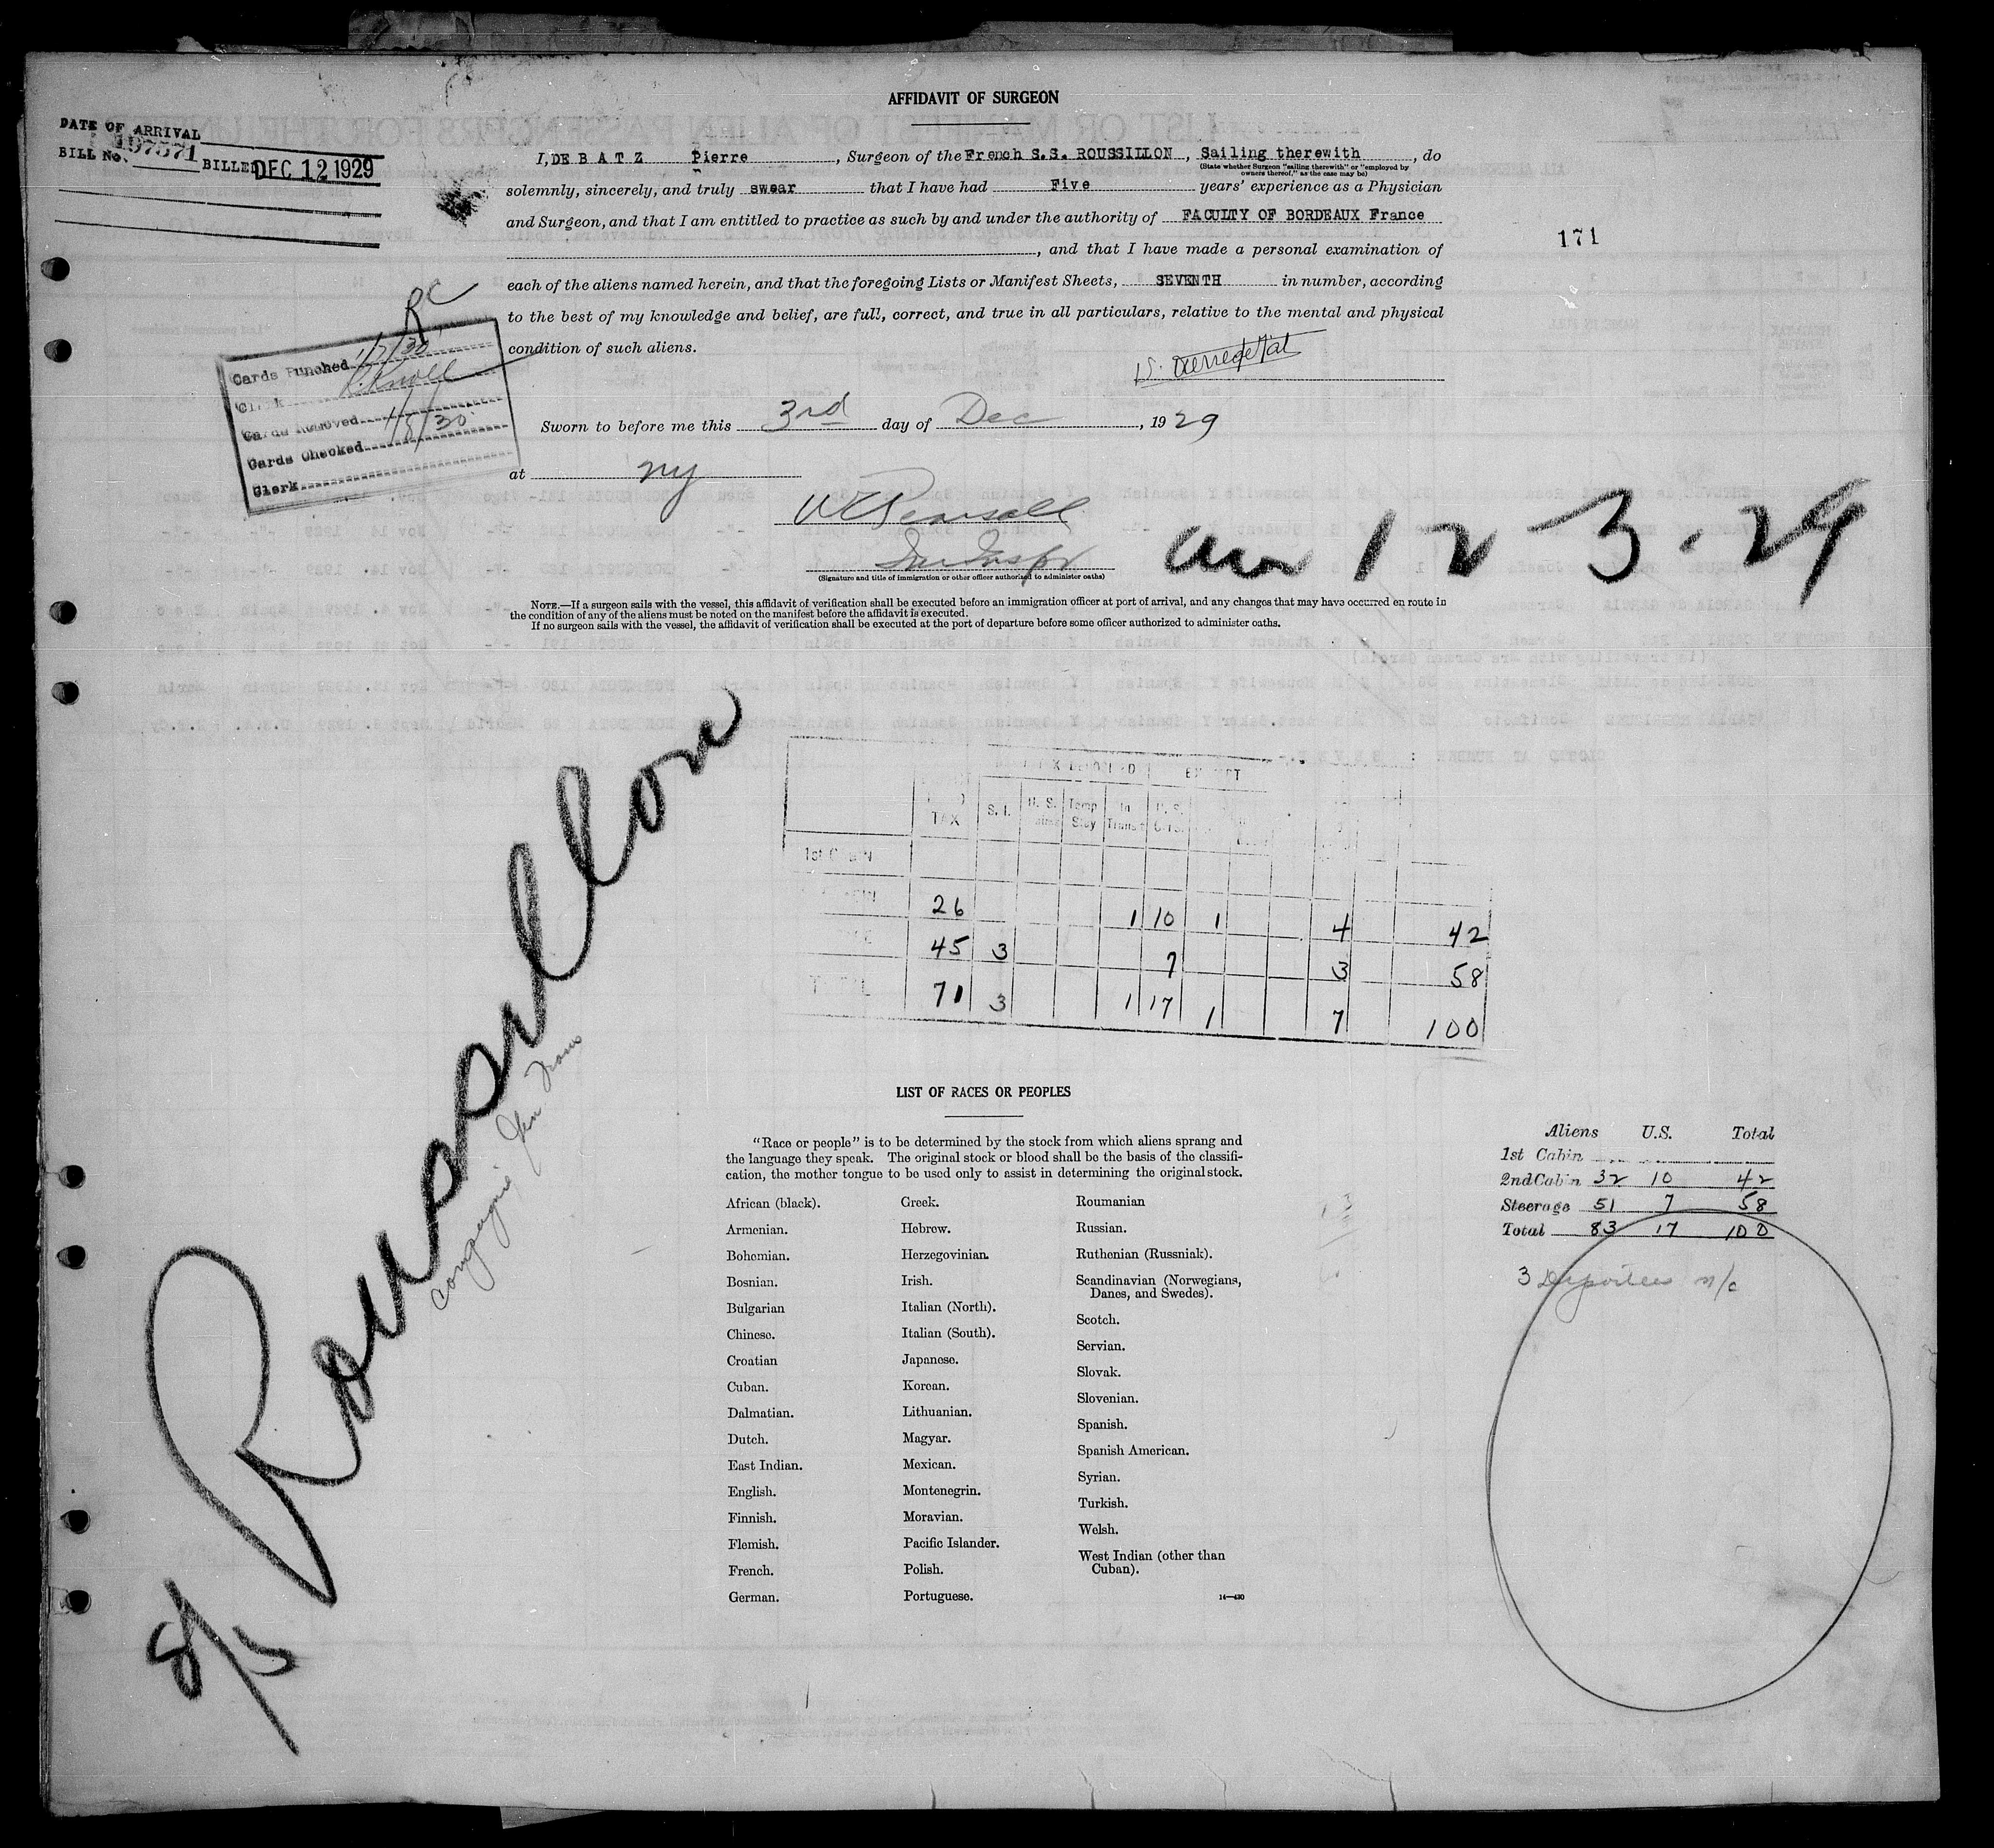 AFFIDAVIT OF SURGEON
DATE OF ARRIVAL
BILL No. 197571 BILLED DEC 12 1929
I, DE BATZ Pierre, Surgeon of the French S.S. ROUSSILLON, Sailing therewith, do
(State whether Surgeon "sailing therewith" or "employed by
owners thereof," as the case may be)
solemnly, sincerely, and truly swear that I have had Five years' experience as a Physician
and Surgeon, and that I am entitled to practice as such by and under the authority of FACULTY OF BORDEAUX France
, and that I have made a personal examination of
171
each of the aliens named herein, and that the foregoing Lists or Manifest Sheets, SEVENTH in number, according
to the best of my knowledge and belief, are full, correct, and true in all particulars, relative to the mental and physical
condition of such aliens.
RC
Cards Punched 1/7/30
Clerk
Cards Removed
Cards Checked 1/8/30
Clerk
Sworn to before me this 3rd day of Dec, 1929
at NY
(Signature and title of immigration or other officer authorized to administer oaths)
12-3-29
NOTE.—If a surgeon sails with the vessel, this affidavit of verification shall be executed before an immigration officer at port of arrival, and any changes that may have occurred en route in
the condition of any of the aliens must be noted on the manifest before the affidavit is executed.
If no surgeon sails with the vessel, the affidavit of verification shall be executed at the port of departure before some officer authorized to administer oaths.
S/S Roussillon
TAX S.I. U.S. Temp Stay In Transit
26 1 10 1 4 42
45 3 7 3 58
TOTAL 71 3 1 17 1 7 100
LIST OF RACES OR PEOPLES
"Race or people" is to be determined by the stock from which aliens sprang and
the language they speak. The original stock or blood shall be the basis of the classifi-
cation, the mother tongue to be used only to assist in determining the original stock.
African (black).
Armenian.
Bohemian.
Bosnian.
Bulgarian
Chinese.
Croatian
Cuban.
Dalmatian.
Dutch.
East Indian.
English.
Finnish.
Flemish.
French.
German.
Greek.
Hebrew.
Herzegovinian.
Irish.
Italian (North).
Italian (South).
Japanese.
Korean.
Lithuanian.
Magyar.
Mexican.
Montenegrin.
Moravian.
Pacific Islander.
Polish.
Portuguese.
Roumanian
Russian.
Ruthenian (Russniak).
Scandinavian (Norwegians,
Danes, and Swedes).
Scotch.
Servian.
Slovak.
Slovenian.
Spanish.
Spanish American.
Syrian.
Turkish.
Welsh.
West Indian (other than
Cuban).
14—430
Aliens U.S. Total
1st Cabin
2nd Cabin 32 10 42
Steerage 51 7 58
Total 83 17 100
3 Deportees n/c